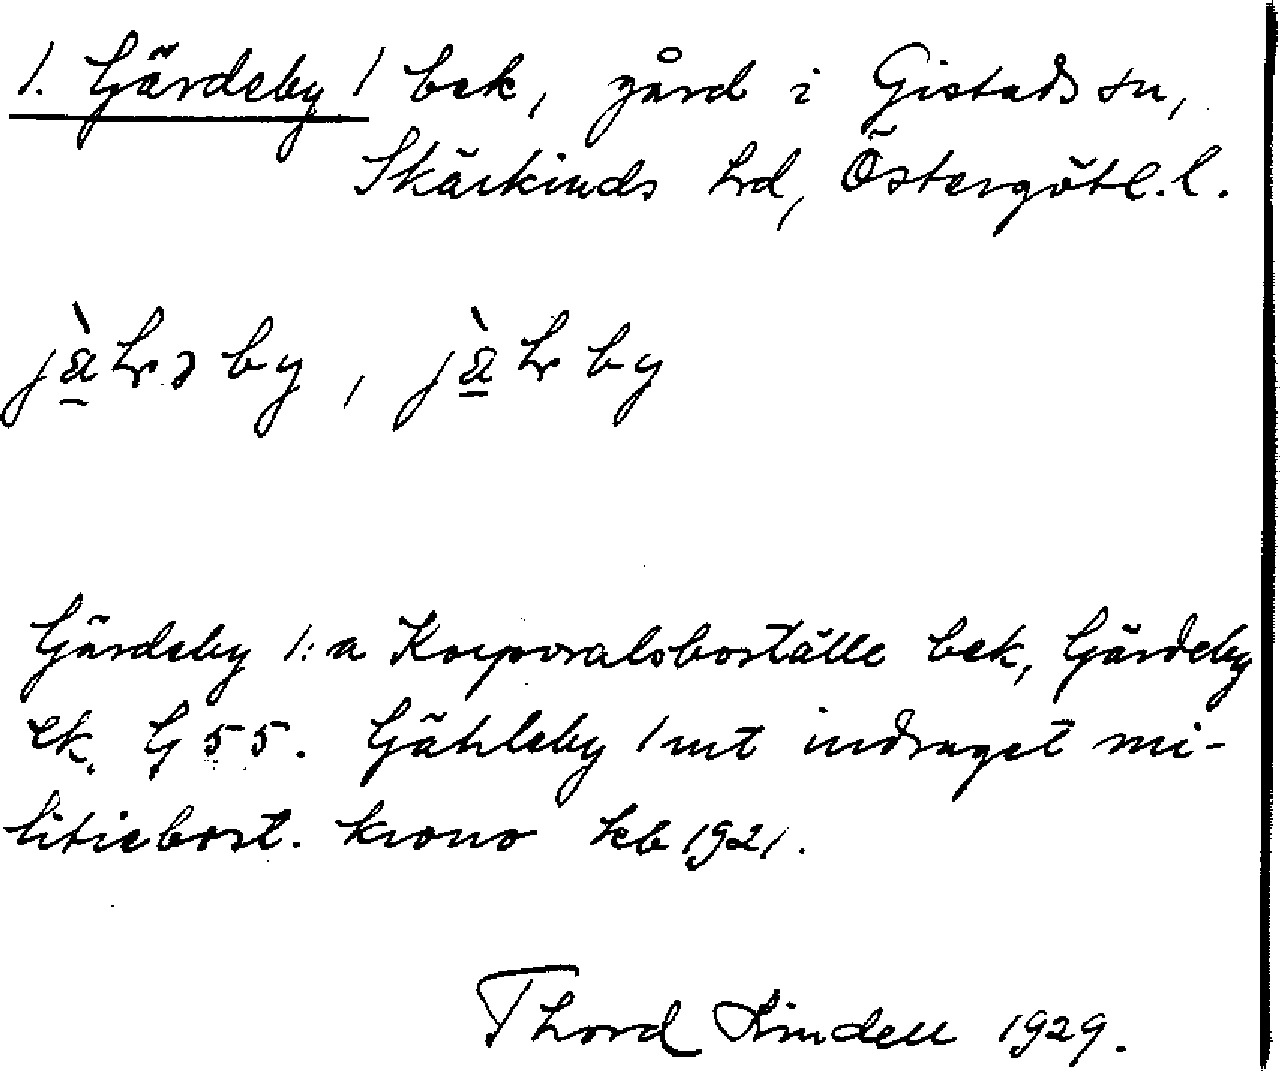 1. Gärdeby 1 bek, gård i Gistads sn,
Skärkinds hrd, Östergötl. l.
Gärdeby 1:a Korporalsboställe bek, Gärdeby
ek. G 55. Gähleby 1 mt indraget mi-
litiebost. krono kb 1921.
Thord Lindell 1929.